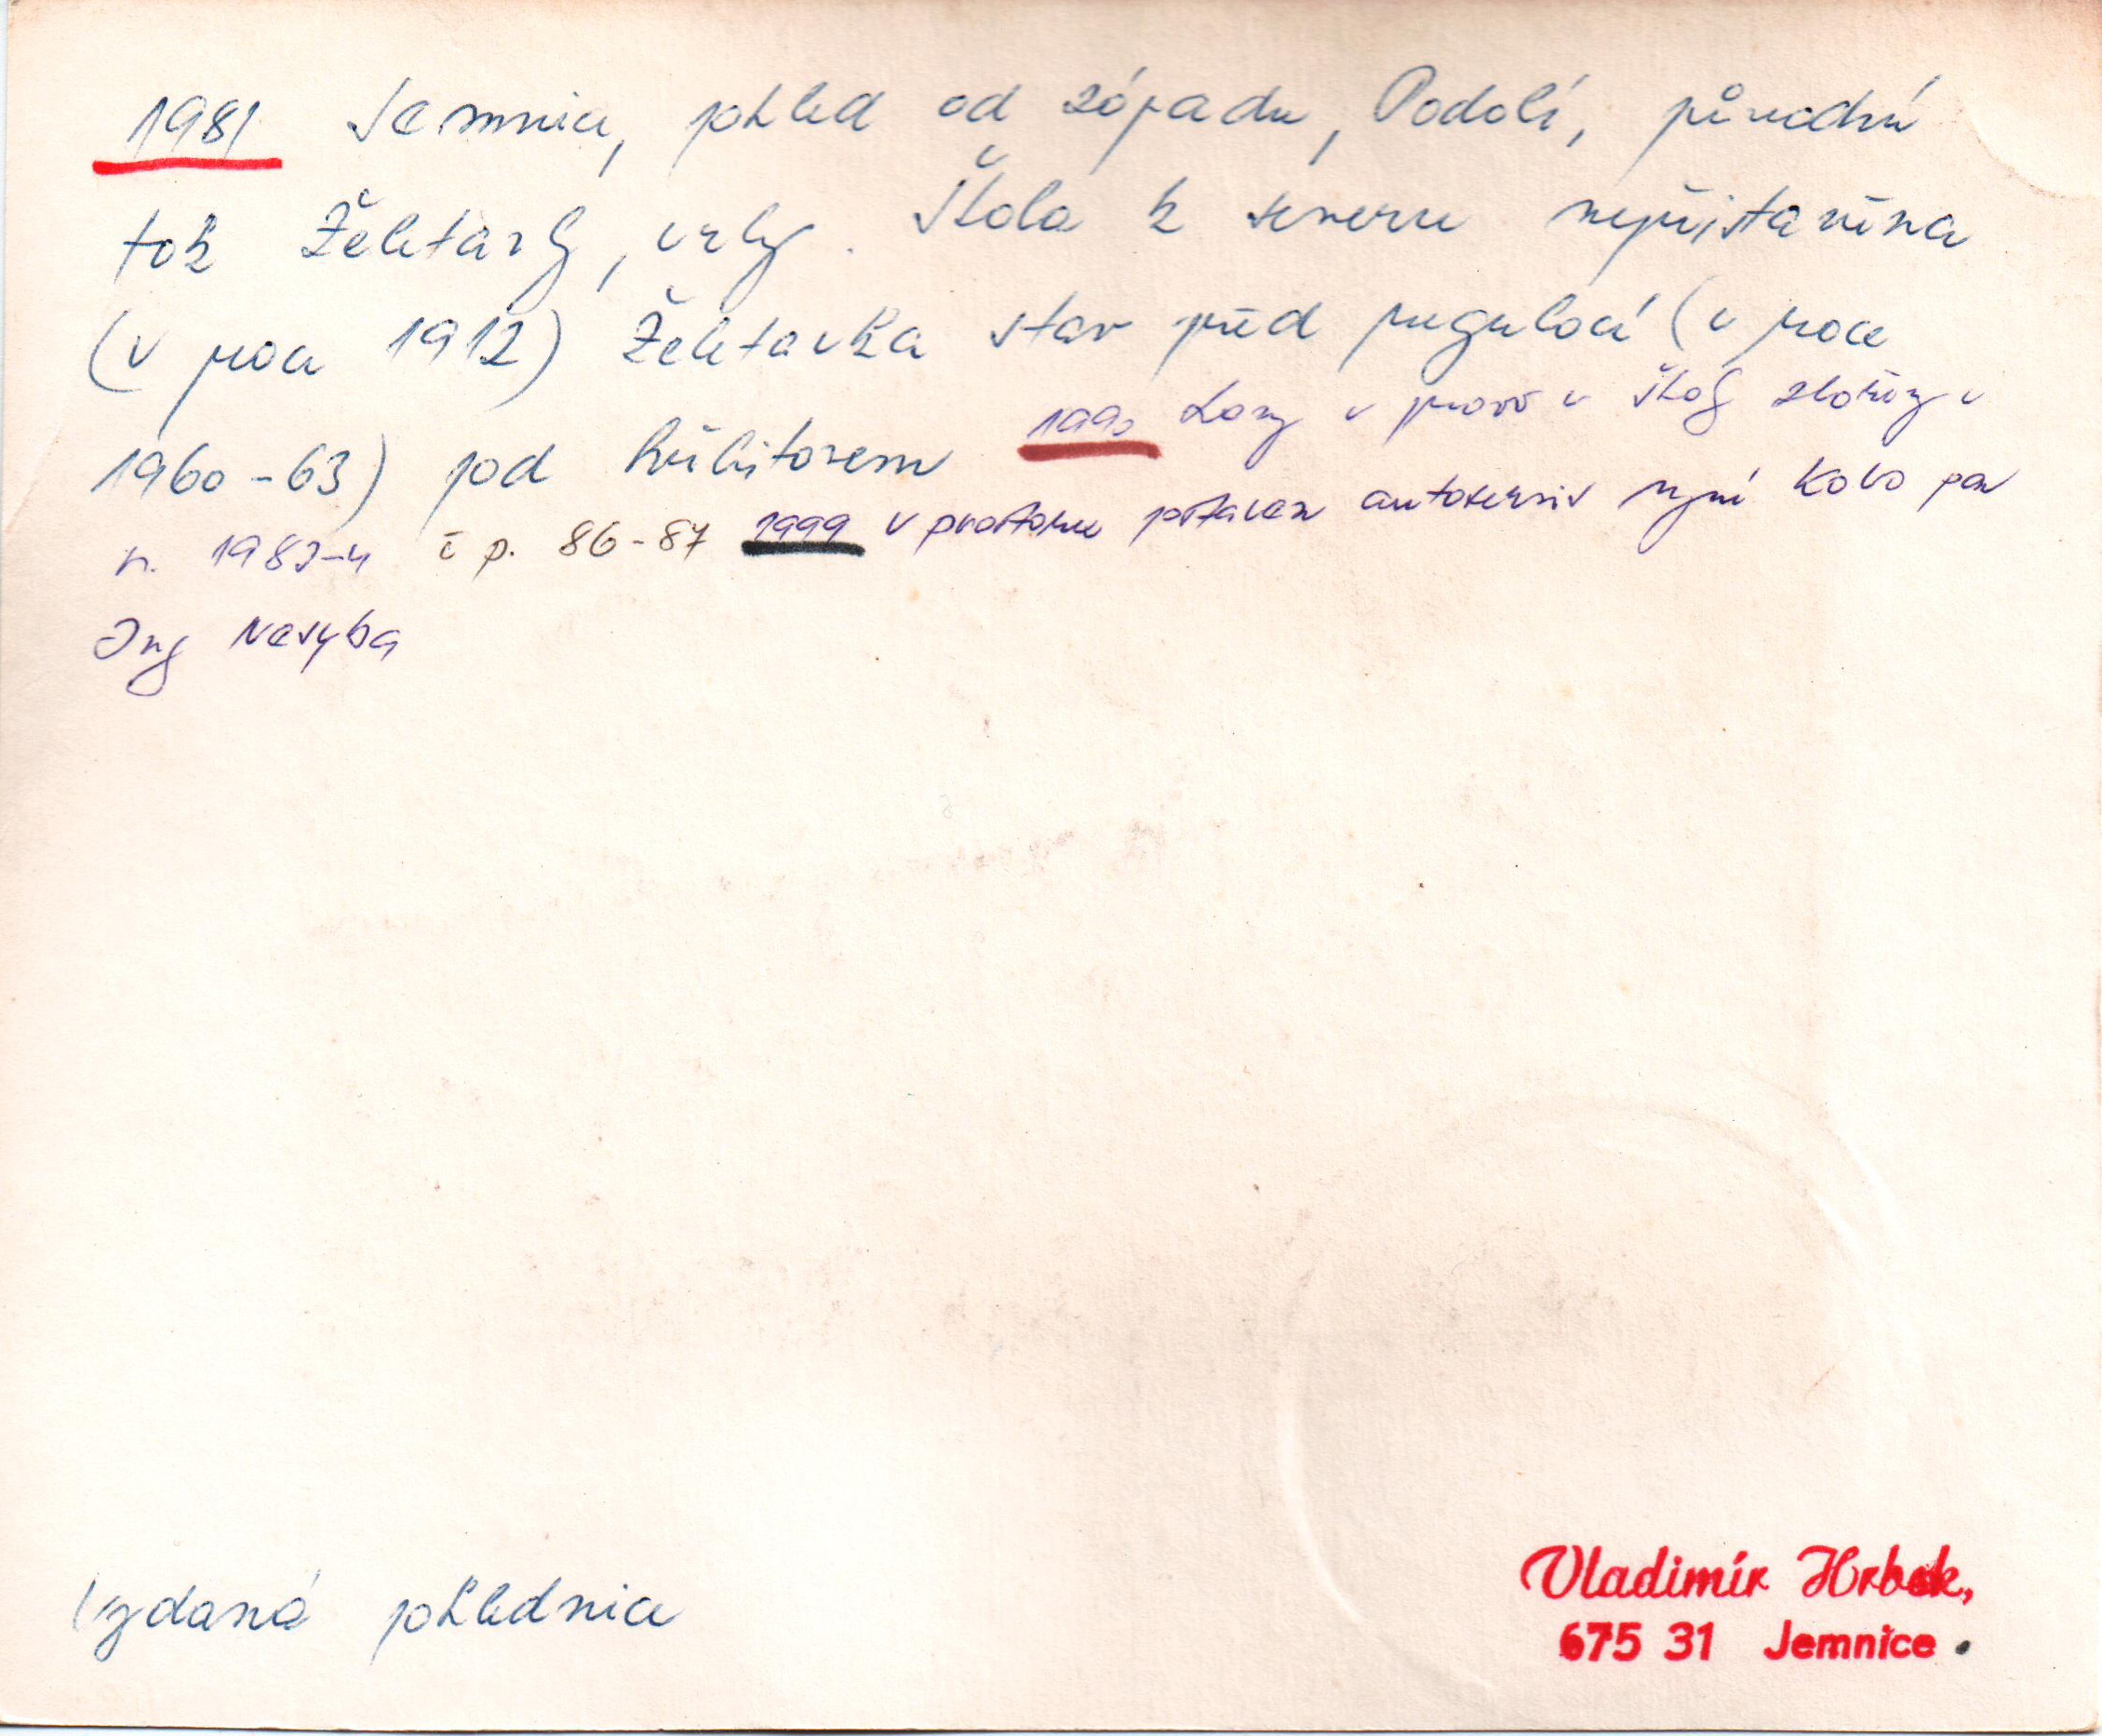 1981 Jemnice, pohled od západu, Podolí, původní
tok Želetavky, vrby. Škola k severu nepřistavěna
(v roce 1912) Želetavka stav před regulací (v roce
1960-63) pod hřbitovem 1990 Domy v pravo u školy zbořeny v
r. 1983-4 č p. 86-87 1999 v prostoru postaven autoservis nyní Kovo pan
Ing Nevyba
Vydaná pohlednice
Vladimír Hrbek,
675 31 Jemnice